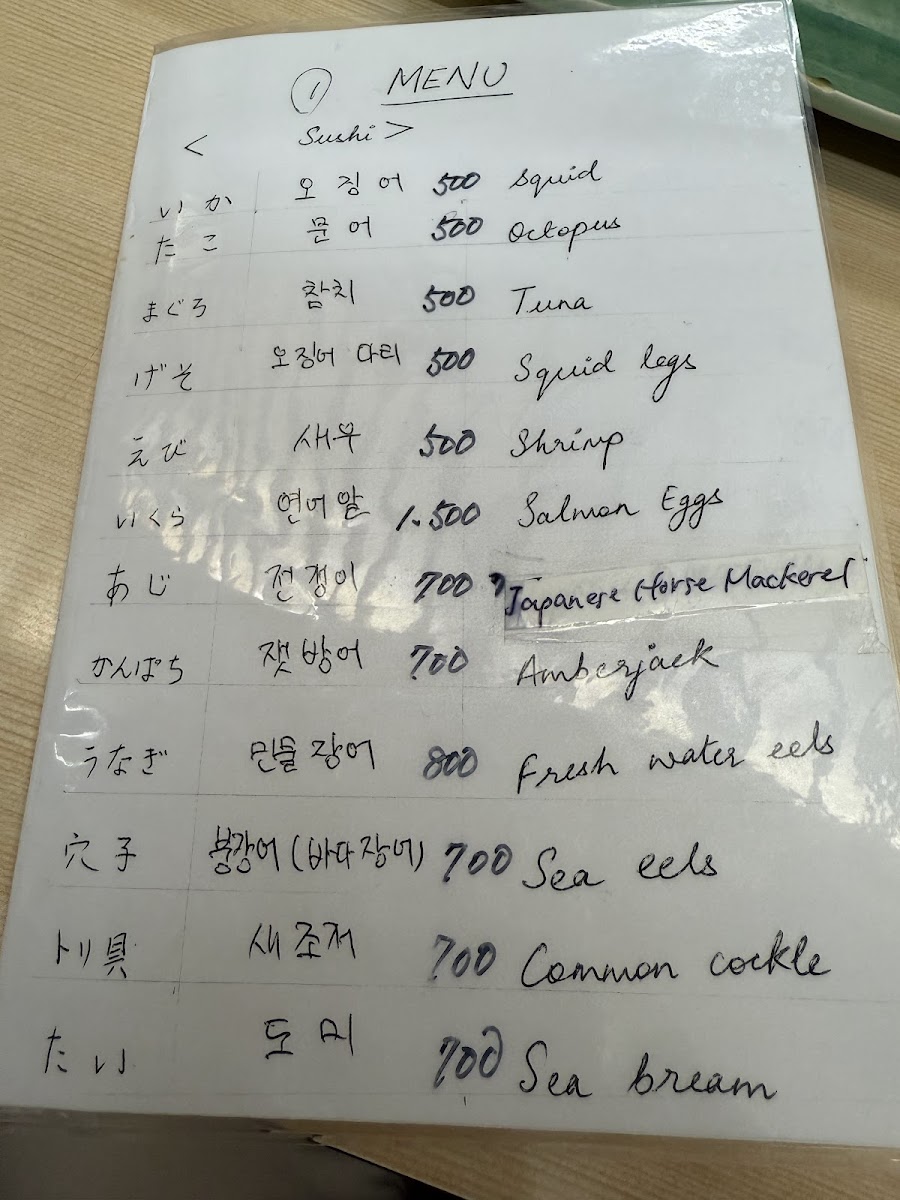 ① MENU
< Sushi >
いか 오징어 500 Squid
たこ 문어 500 Octopus
まぐろ 참치 500 Tuna
げそ 오징어 다리 500 Squid legs
えび 새우 500 Shrimp
いくら 연어알 1.500 Salmon Eggs
あじ 전갱이 700 Japanese Horse Mackerel
かんぱち 잿방어 700 Amberjack
うなぎ 민물장어 800 Fresh water eels
穴子 붕장어(바다장어) 700 Sea eels
トリ貝 새조개 700 Common cockle
たい 도미 700 Sea bream